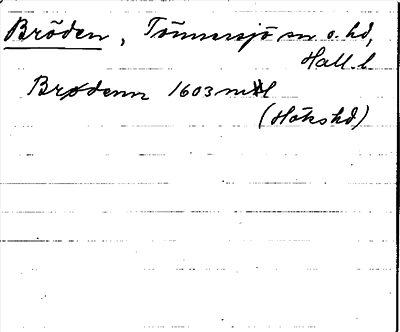 Bröden, Tönnersjö sn o. hd,
Hall. l
Brødenn 1603 mtl
(Höks hd)